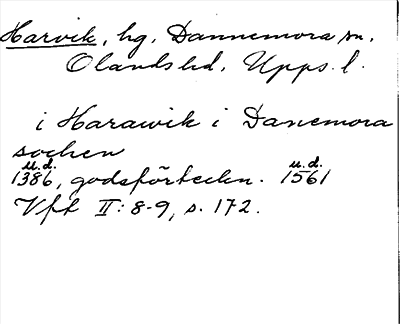 Harvik, hg, Dannemora sn,
Olands hd, Upps. l.
i Harawik i Danemora
sochen
u.d. u.d.
1386, godsförteckn. 1561
Vft II: 8-9, s. 172.